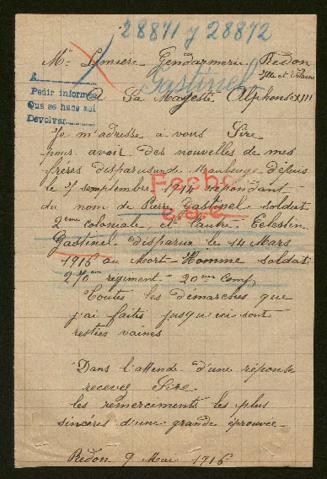 28871 y 28872
Mme Lemière Gendarmerie Redon
Ille et Vilaine
Gastinel
A Sa Majesté Alphonse XIII
A
Pedir informes
Que se hace así
Devolver
Je m'adresse a vous Sire
pour avoir des nouvelles de mes
frères disparus un de Maubeuge depuis
le 7 septembre 1914 repondant
du nom de Pierre Gastinel soldat
Fecho
2eme coloniale et l'autre Celestin
Gastinel disparu le 14 Mars
1916 au Mort-Homme soldat
270em regiment 20me Comp
Toutes les demarches que
j'ai faites jusqu'ici sont
restées vaines
Dans l'attende d'une réponse
recevez Sire
les remerciments les plus
sincéres d'une grande éprouvée
Redon 9 Mai 1916